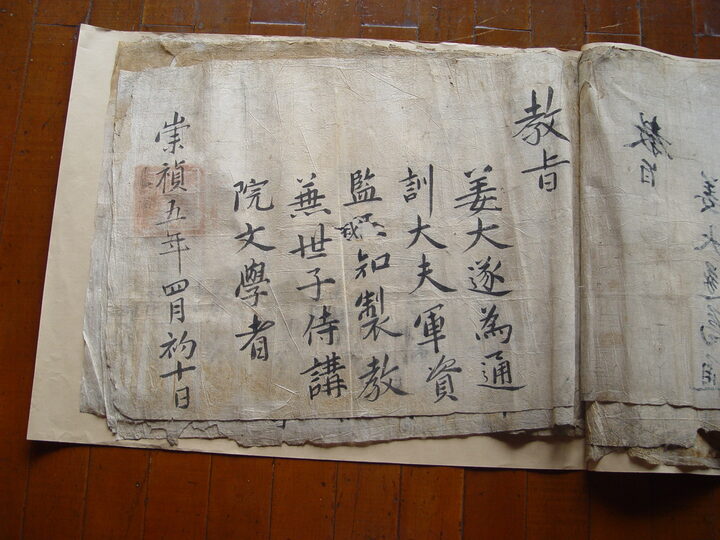 教旨
姜大遂為通
訓大夫軍資
監知製教
兼世子侍講
院文學者
崇禎五年四月初十日